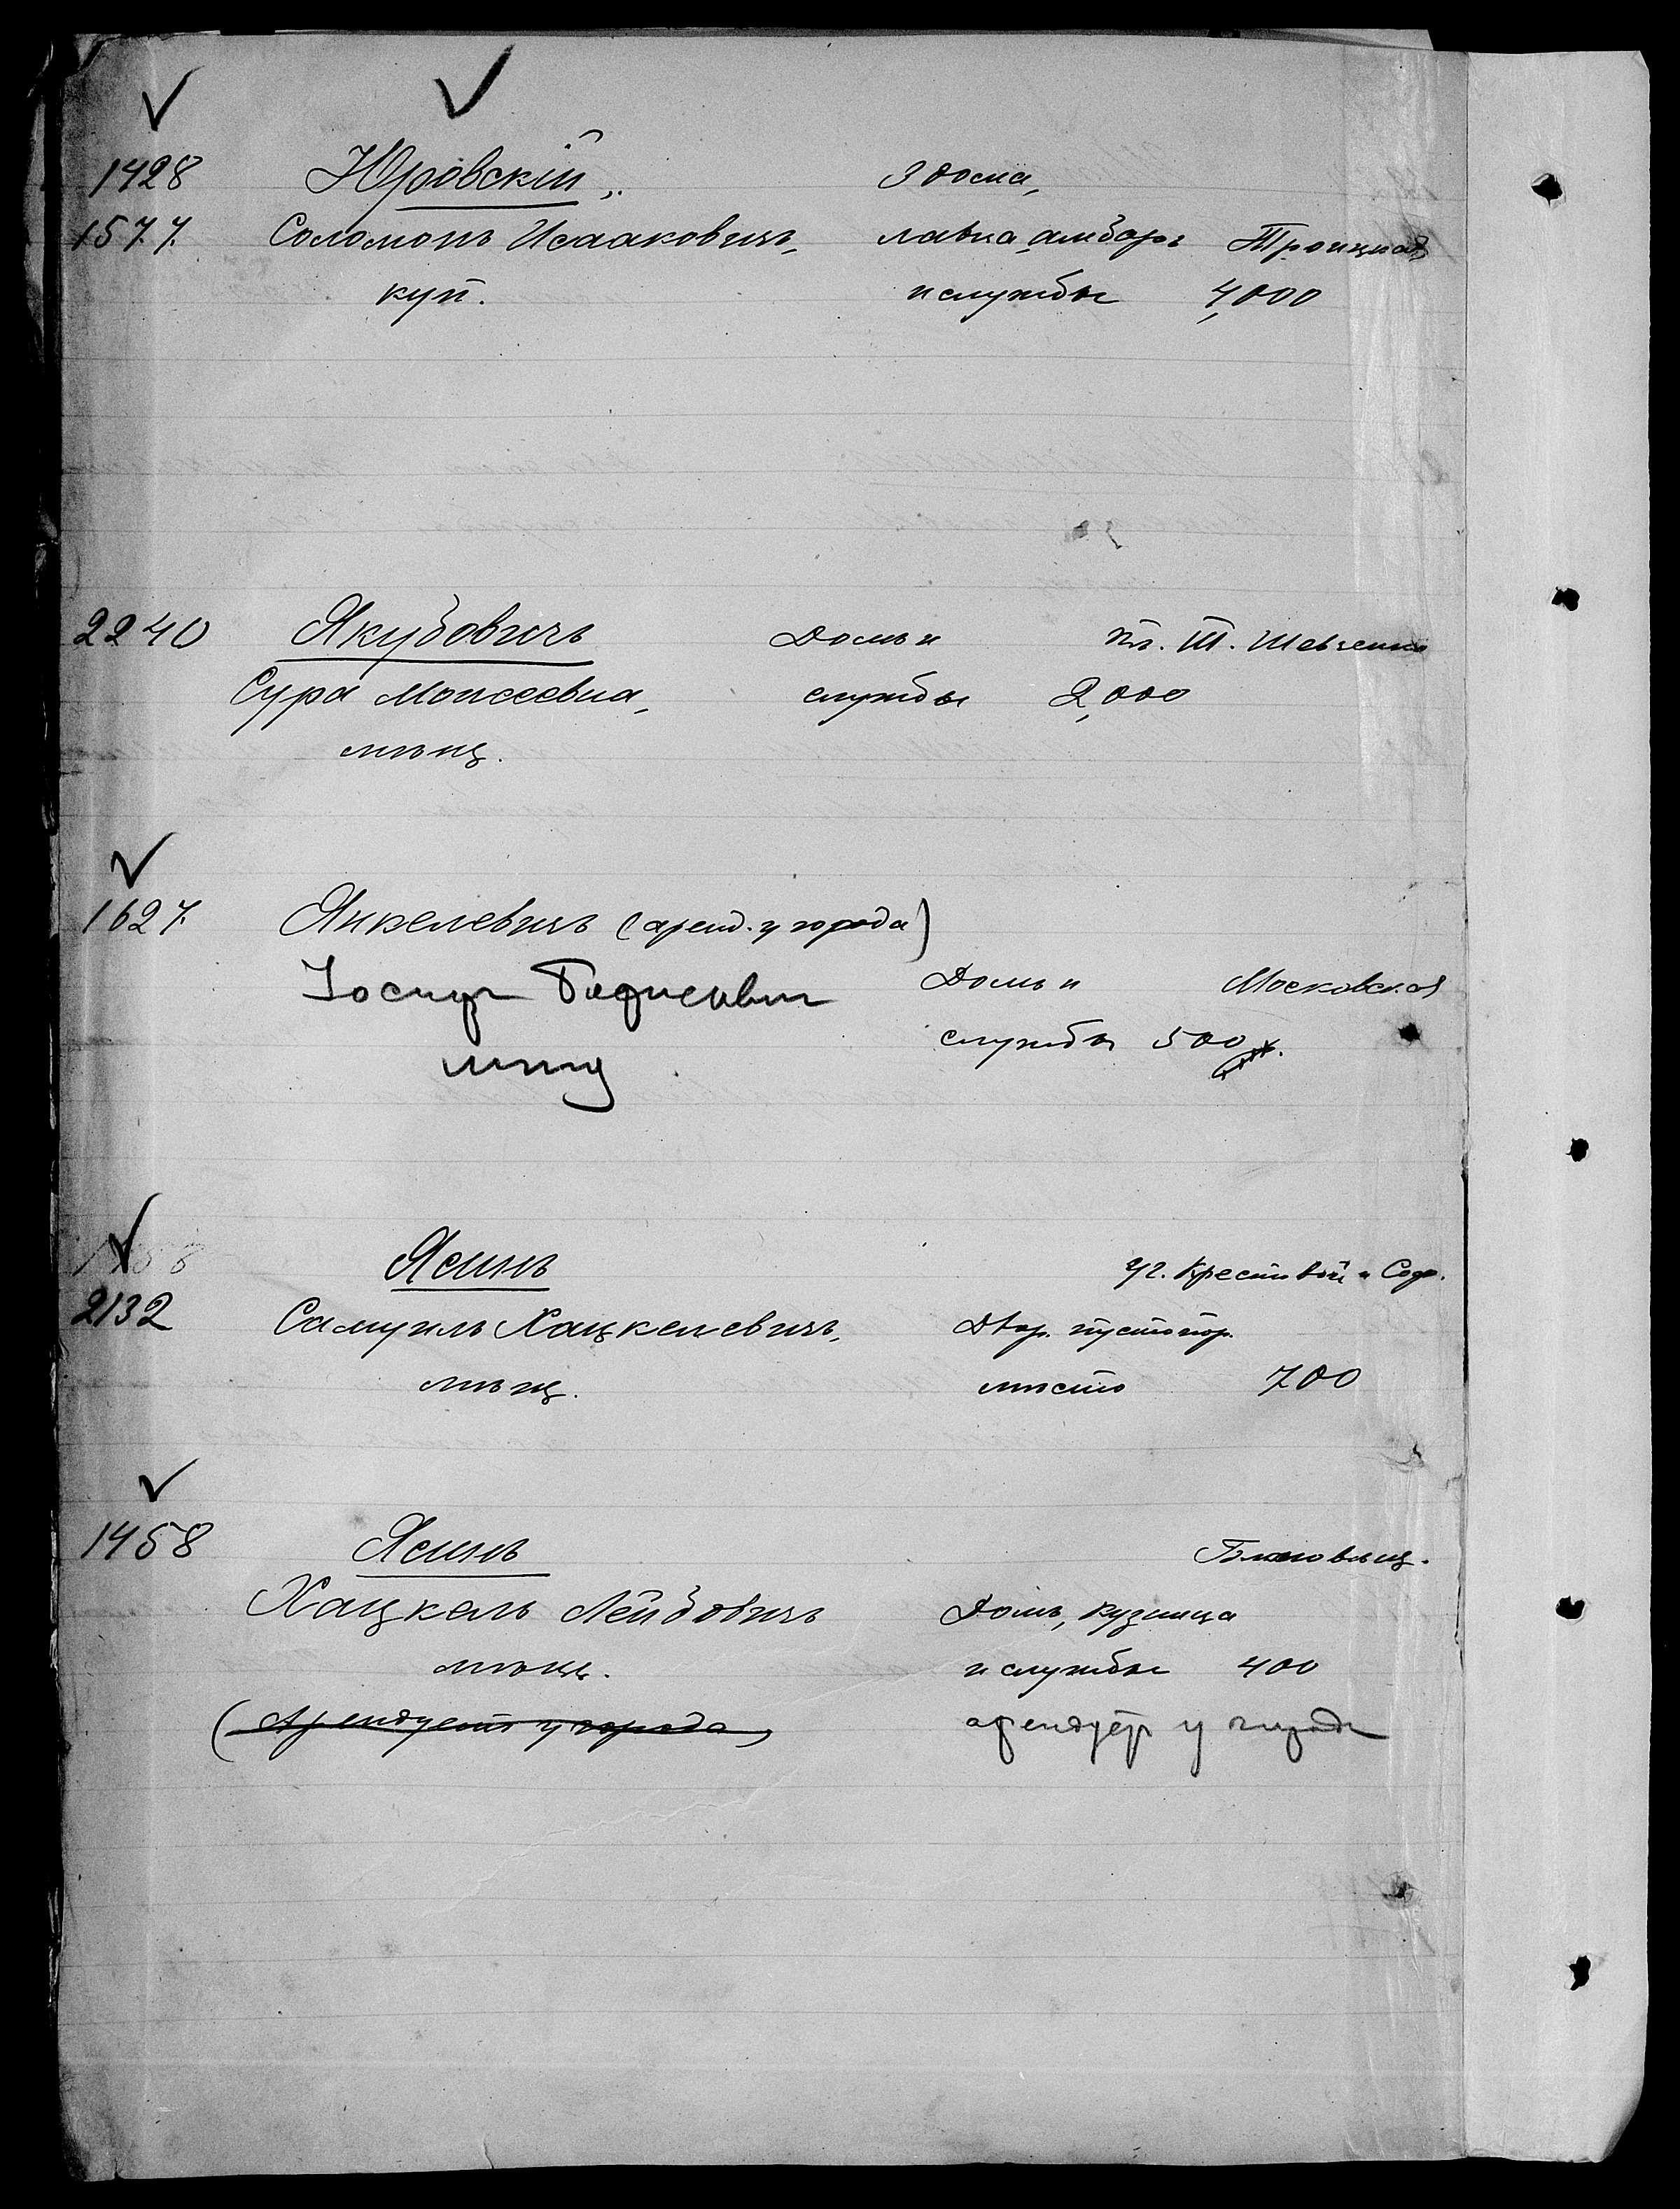 1428 Юровскій, 3 дома,
1577. Соломонъ Исааковичъ, лавка, амбаръ Троицкая
куп. и службы 4,000
2240 Якубовичъ Домъ и пл. Т. Шевченко
Сура Моисеевна, службы 2,000
мѣщ.
1627. Янкелевичъ (аренд. у города)
Іосифъ Домъ и Московская
мѣщ службы 500
Ясинъ уг. Крестовой и Сод.
2132 Самуилъ Хацкелевичъ, Двор. пустопор.
мѣщ. мѣсто 700
1458 Ясинъ
Хацкель Лейбовичъ Домъ, кузница
мѣщ. и службы 400
(Арендуетъ у города) арендуетъ у города